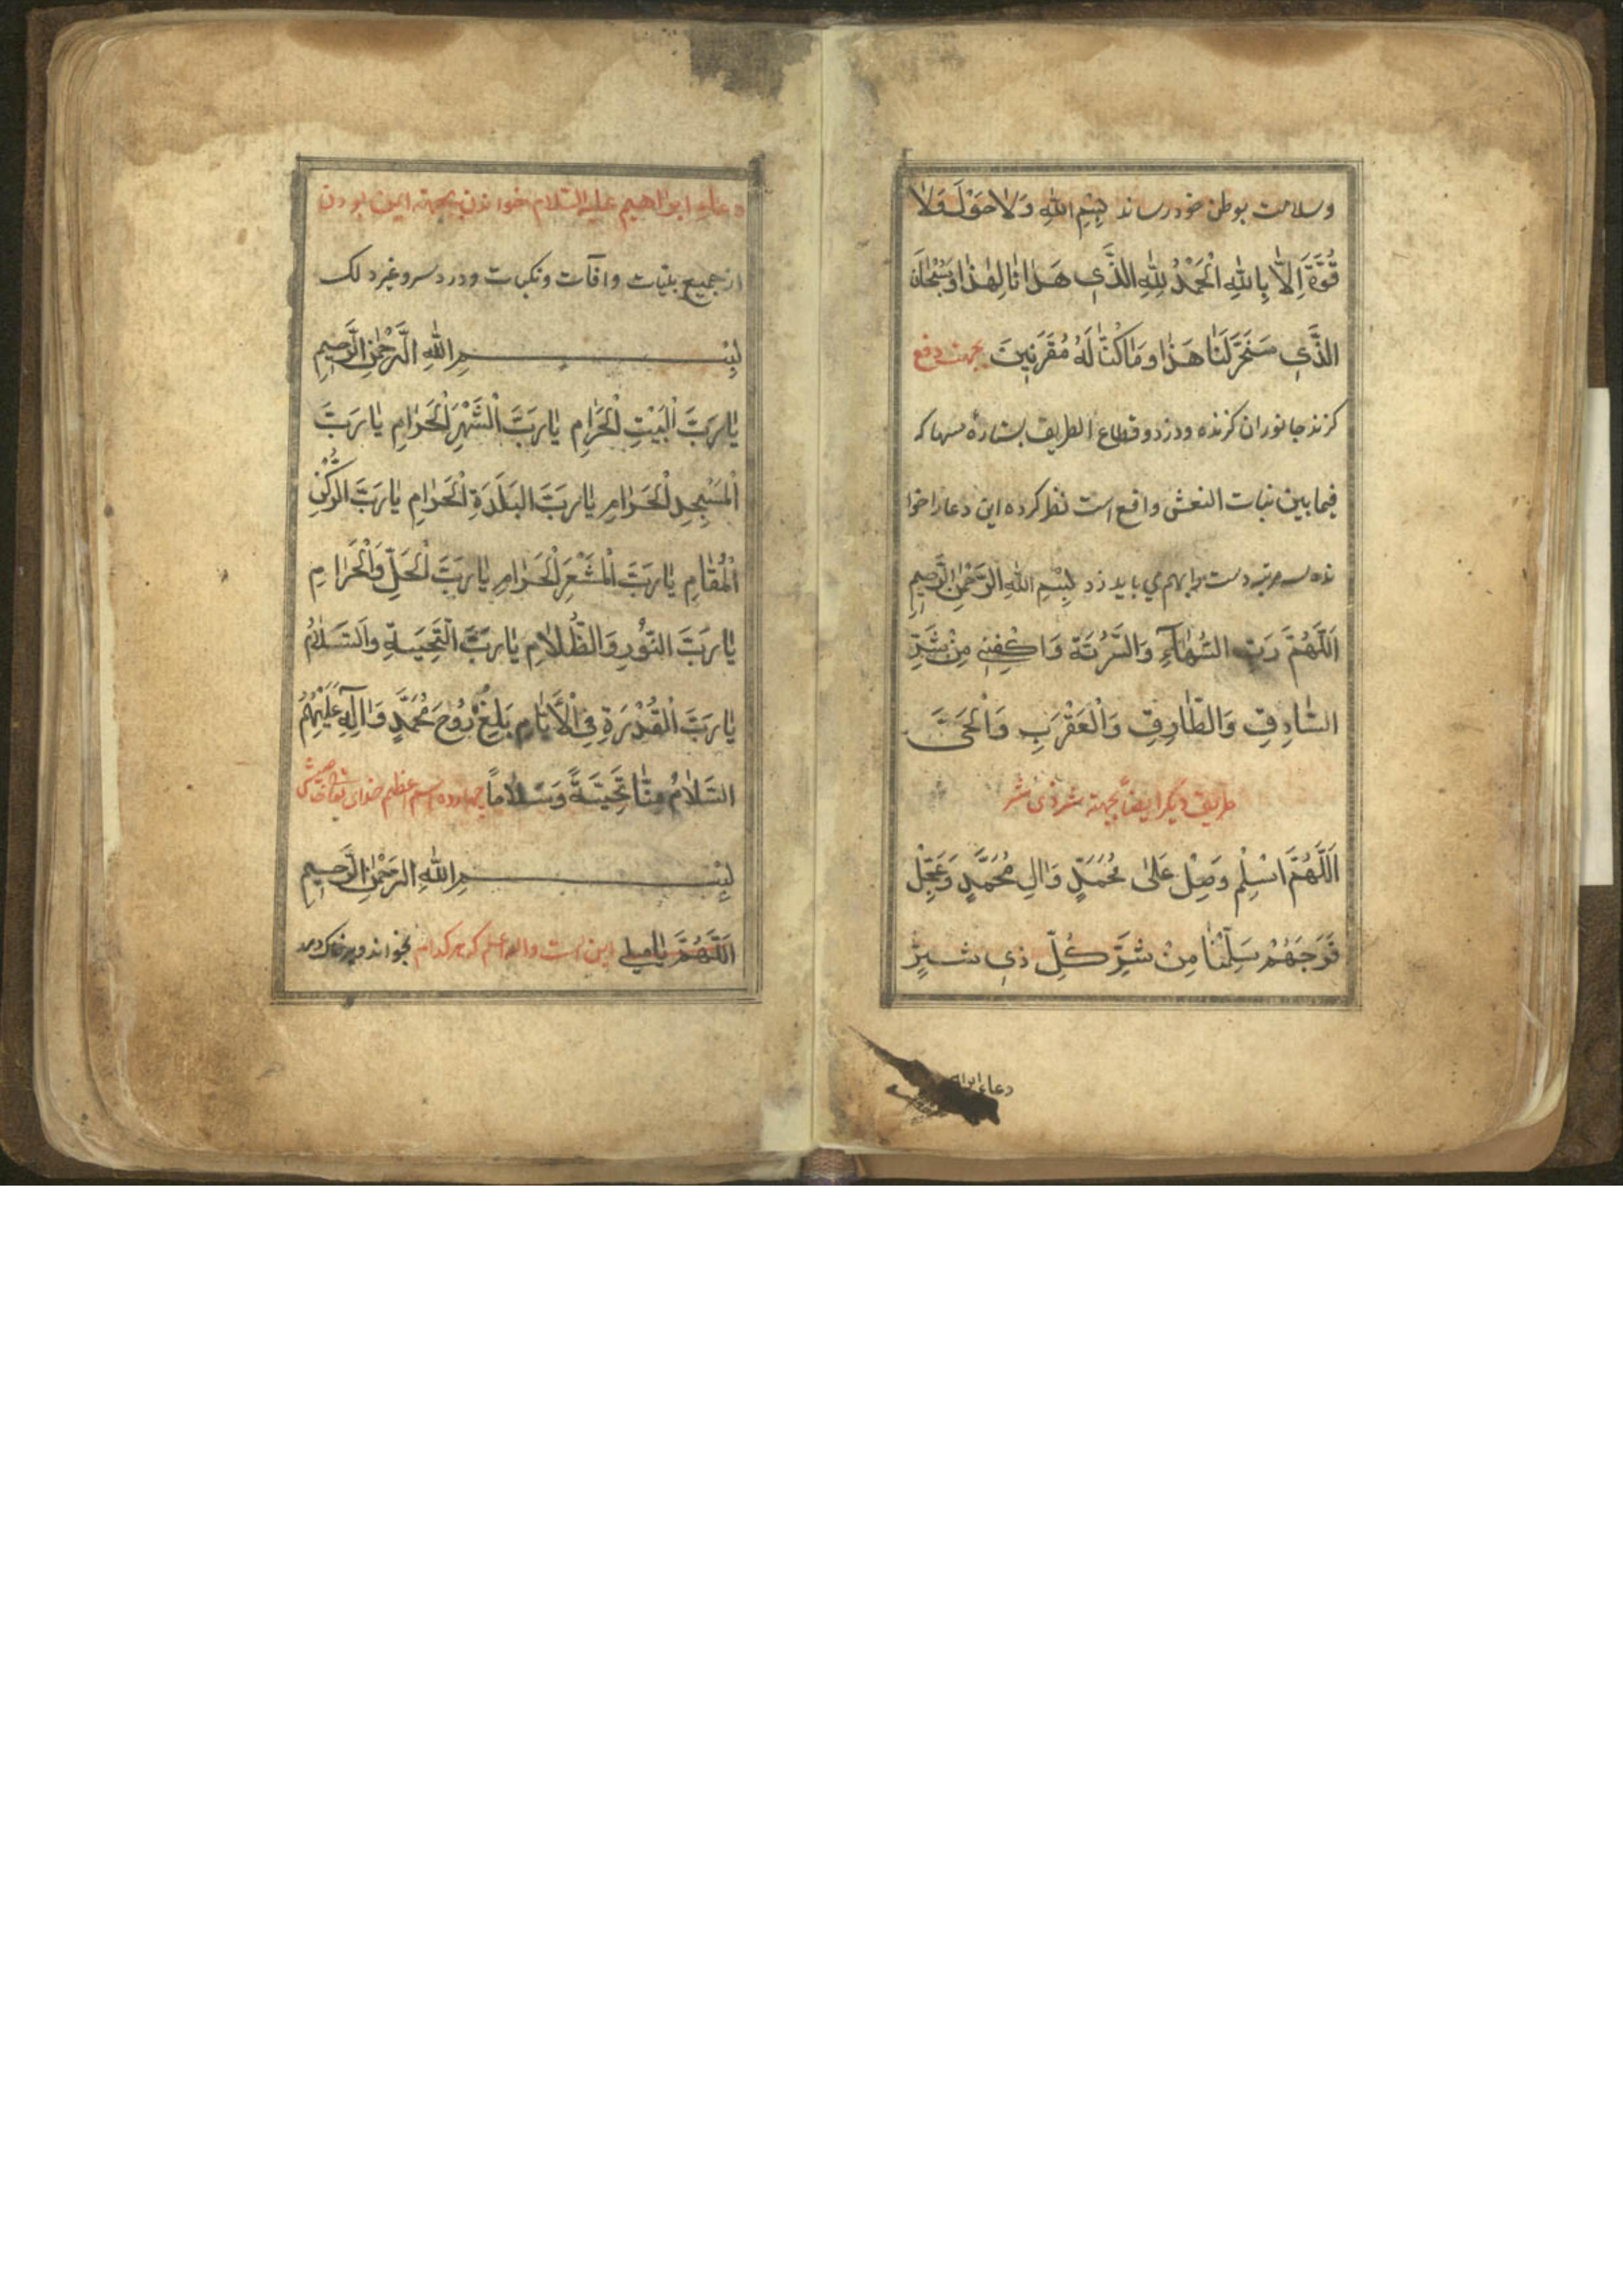 وسلامت بوطن خود رساند بِسْمِ اللهِ وَلاٰ حَوْلَ وَلاٰ
قُوَّةَ اِلاّٰ بِاللهِ اَلْحَمْدُ لِلّٰهِ الَّذَّي هَدٰانٰا لِهٰذٰا وَسُبْحٰانَ
الَّذَّي سَخَّرَ لَنٰا هَذٰا وَمٰا كُنّٰا لَهُ مُقَرَنِينَ بجهت دفع
كزند جانوران كزنده ودزد وقطاع الطريق بستارهٔ سها كه
فيما بين بنات النعش واقع است نظر كرده اين دعا را خوا
نده سه مرتبه دست برهم مي بايد زد بِسْمِ اللهِ الرَّحْمٰنِ الرَّحِيمِ
اَللّٰهُمَّ رَبِّ السُّهٰاۤءِ وَاكْفِنِي مِنْ شَرِّ
السّٰارِقِ وَالطّٰارِقِ وَالْعَقْرَبِ وَالْحَيَّ
طريق ديكر ايضاً بجهة شر ذي شر
اَللّٰهُمَّ وَصَلِّ عَلىٰ مُحَمَّدٍ وَاٰلِ مُحَمَّدٍ وَعَجِّلْ
فَرَجَهُمْ سَلِّمْنٰا مِنْ شَرِّ كُلِّ ذي شَرٍّ
دعاء
دعاء ابراهيم عليه السلام خواندن بجهة ايمن بودن
از جميع بليات وافآت ونكبات ودرد سر وغير ذلك
بِسْمِ اللهِ الرَّحْمٰنِ الرَّحِيمِ
يٰا رَبَّ الْبَيْتِ الْحَرٰامِ يٰا رَبَّ الْشَّهْرِ الْحَرٰامِ يٰا رَبَّ
الْمَسْجِدِ الْحَرٰامِ يٰا رَبَّ الْبَلَدَةِ الْحَرٰامِ يٰا رَبَّ الرُّكْنِ
الْمُقٰامِ يٰا رَبَّ الْمَشْعَرِ الْحَرٰامِ يٰا رَبَّ الْحَلِّ وَالْحَرٰامِ
يٰا رَبَّ النُّورِ وَالظُّلاٰمِ يٰا رَبَّ التَّحِيَّةِ وَالسَّلاٰمِ
يٰا رَبَّ الْقُدْرَةِ فِي الْأَيّٰامِ بَلِّغْ رُوحَ مُحَمَّدٍ وَاٰلِهِ عَلَيْهِمُ
السَّلاٰمُ مِنّٰا تَحِيَّةً وَسَلاٰماً چهارده اسم اعظم خداى تعالى
بِسْمِ اللهِ الرَّحْمٰنِ الرَّحِيمِ
اَللّٰهُمَّ اين است والله اعلم كه هر كدام بخواند وبر خاك دمد